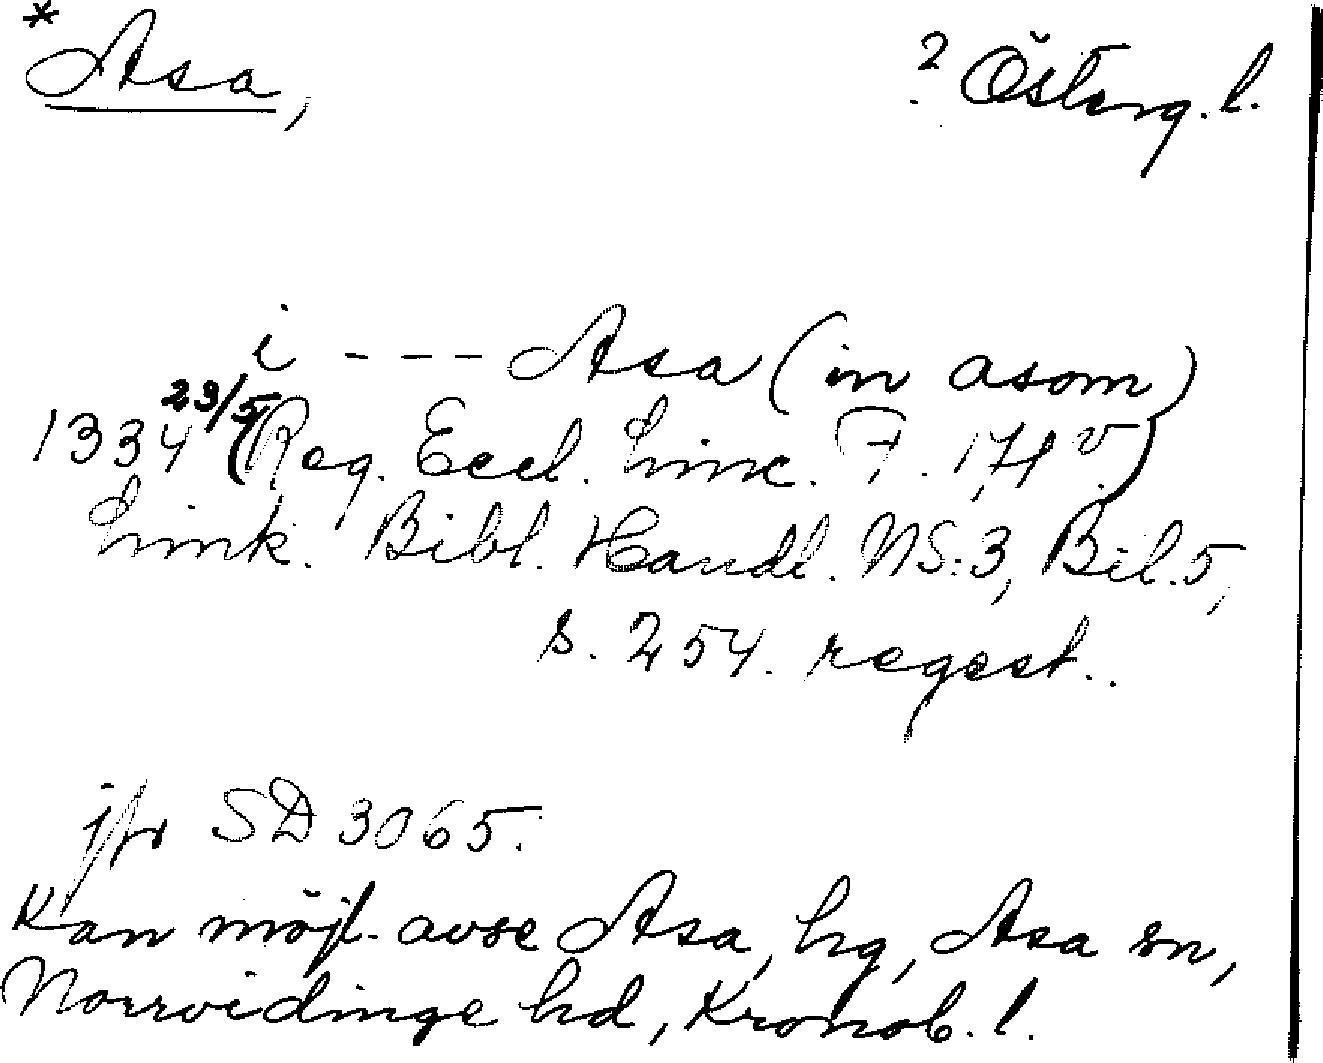 * Asa, ? Österg. l.
i --- Asa (in asom)
1334 23/5 (Reg. Eccl. Linc. F. 171 v.)
Link. Bibl. Handl. NS. 3, Bil. 5,
s. 254. regest.
jfr SD 3065.
Kan möjl. avse Asa, hg, Asa sn,
Norrvidinge hd, Kronob. l.